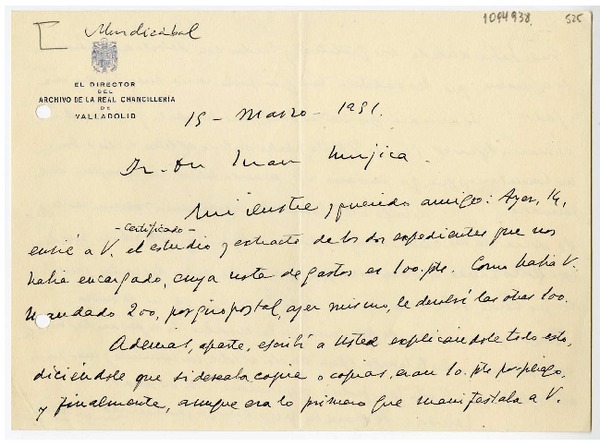 Mendicábal
1094938
525
EL DIRECTOR
DEL
ARCHIVO DE LA REAL CHANCILLERÍA
DE
VALLADOLID
15 - Marzo - 1951.
Sr. Dn Juan Mujica.
Mi ilustre y querido amigo: Ayer, 14,
- certificado -
envié a V. el estudio y extracto de los dos expedientes que nos
había encargado, cuya nota de gastos es 100. pts. Como había V.
mandado 200, por giro postal, ayer mismo, le devolví las otras 100.
Además, aparte, escribí a Usted explicándole todo esto,
diciéndole que si deseaba copia o copias, eran 10. pts por pliego.
y finalmente, aunque era lo primero que manifestaba a V.